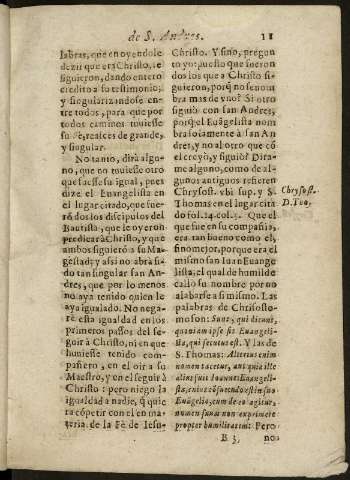 de S. Andres. 11
labras, que en oyendole
dezir que era Christo, le
siguieron, dando entero
credito a su testimonio;
y singularizandose en-
tre todos, para que por
todos caminos tuuiesse
su Fè, realces de grande,
y singular.
No tanto, dirà algu-
no, que no tuuiesse otro
que fuesse su igual, pues
dize el Euangelista en
el lugar citado, que fue-
rõ dos los discipulos del
Bautista, que le oyeron
predicar à Christo, y que
ambos siguierõ a su Ma-
gestad; y assi no abrà si-
do tan singular san An-
dres, que por lo menos
no aya tenido quien le
aya igualado. No nega-
rè esta igualdad en los
primeros passos del se-
guir à Christo, ni en que
huuiesse tenido com-
pañero, en el oir a su
Maestro, y en el seguir à
Christo: pero niego la
igualdad a nadie, q̃ quie
ra cõpetir con el en ma-
teria de la Fè de Iesu-
Christo. Y sino, pregun
to yo: puesto que fueron
dos los que a Christo si-
guieron, porq̃ no se nom
bra mas de vno? Si otro
siguiò con san Andres,
porq̃ el Euãgelista nom
bra solamente à san An
dres, y no al otro que cõ
el creyò, y siguiò? Dira-
me alguno, como de al-
gunos antiguos refieren
Chrysost. vbi sup. y S.
Thomas en el lugar cita
do fol. 24. col. 3. Que el
que fue en su compañia,
era tan bueno como el,
sino mejor, porque era el
mismo san Iuan Euange
lista; el qual de humilde
callò su nombre por no
alabarse a si mismo. Las
palabras de Chrisosto-
mo son: Sunt, qui dicunt,
quoniam ipse sit Euangeli-
sta, qui secutus est. Y las de
S. Thomas: Alterius enim
nomen tacetur, aut quia ille
alius fuit Ioannes Euange-
lista,
Euãgelio, cum de eo agitur,
nomen suum non exprimere
propter humilitatem: Pero
Chrysost.
D. Tho.
B 3, no